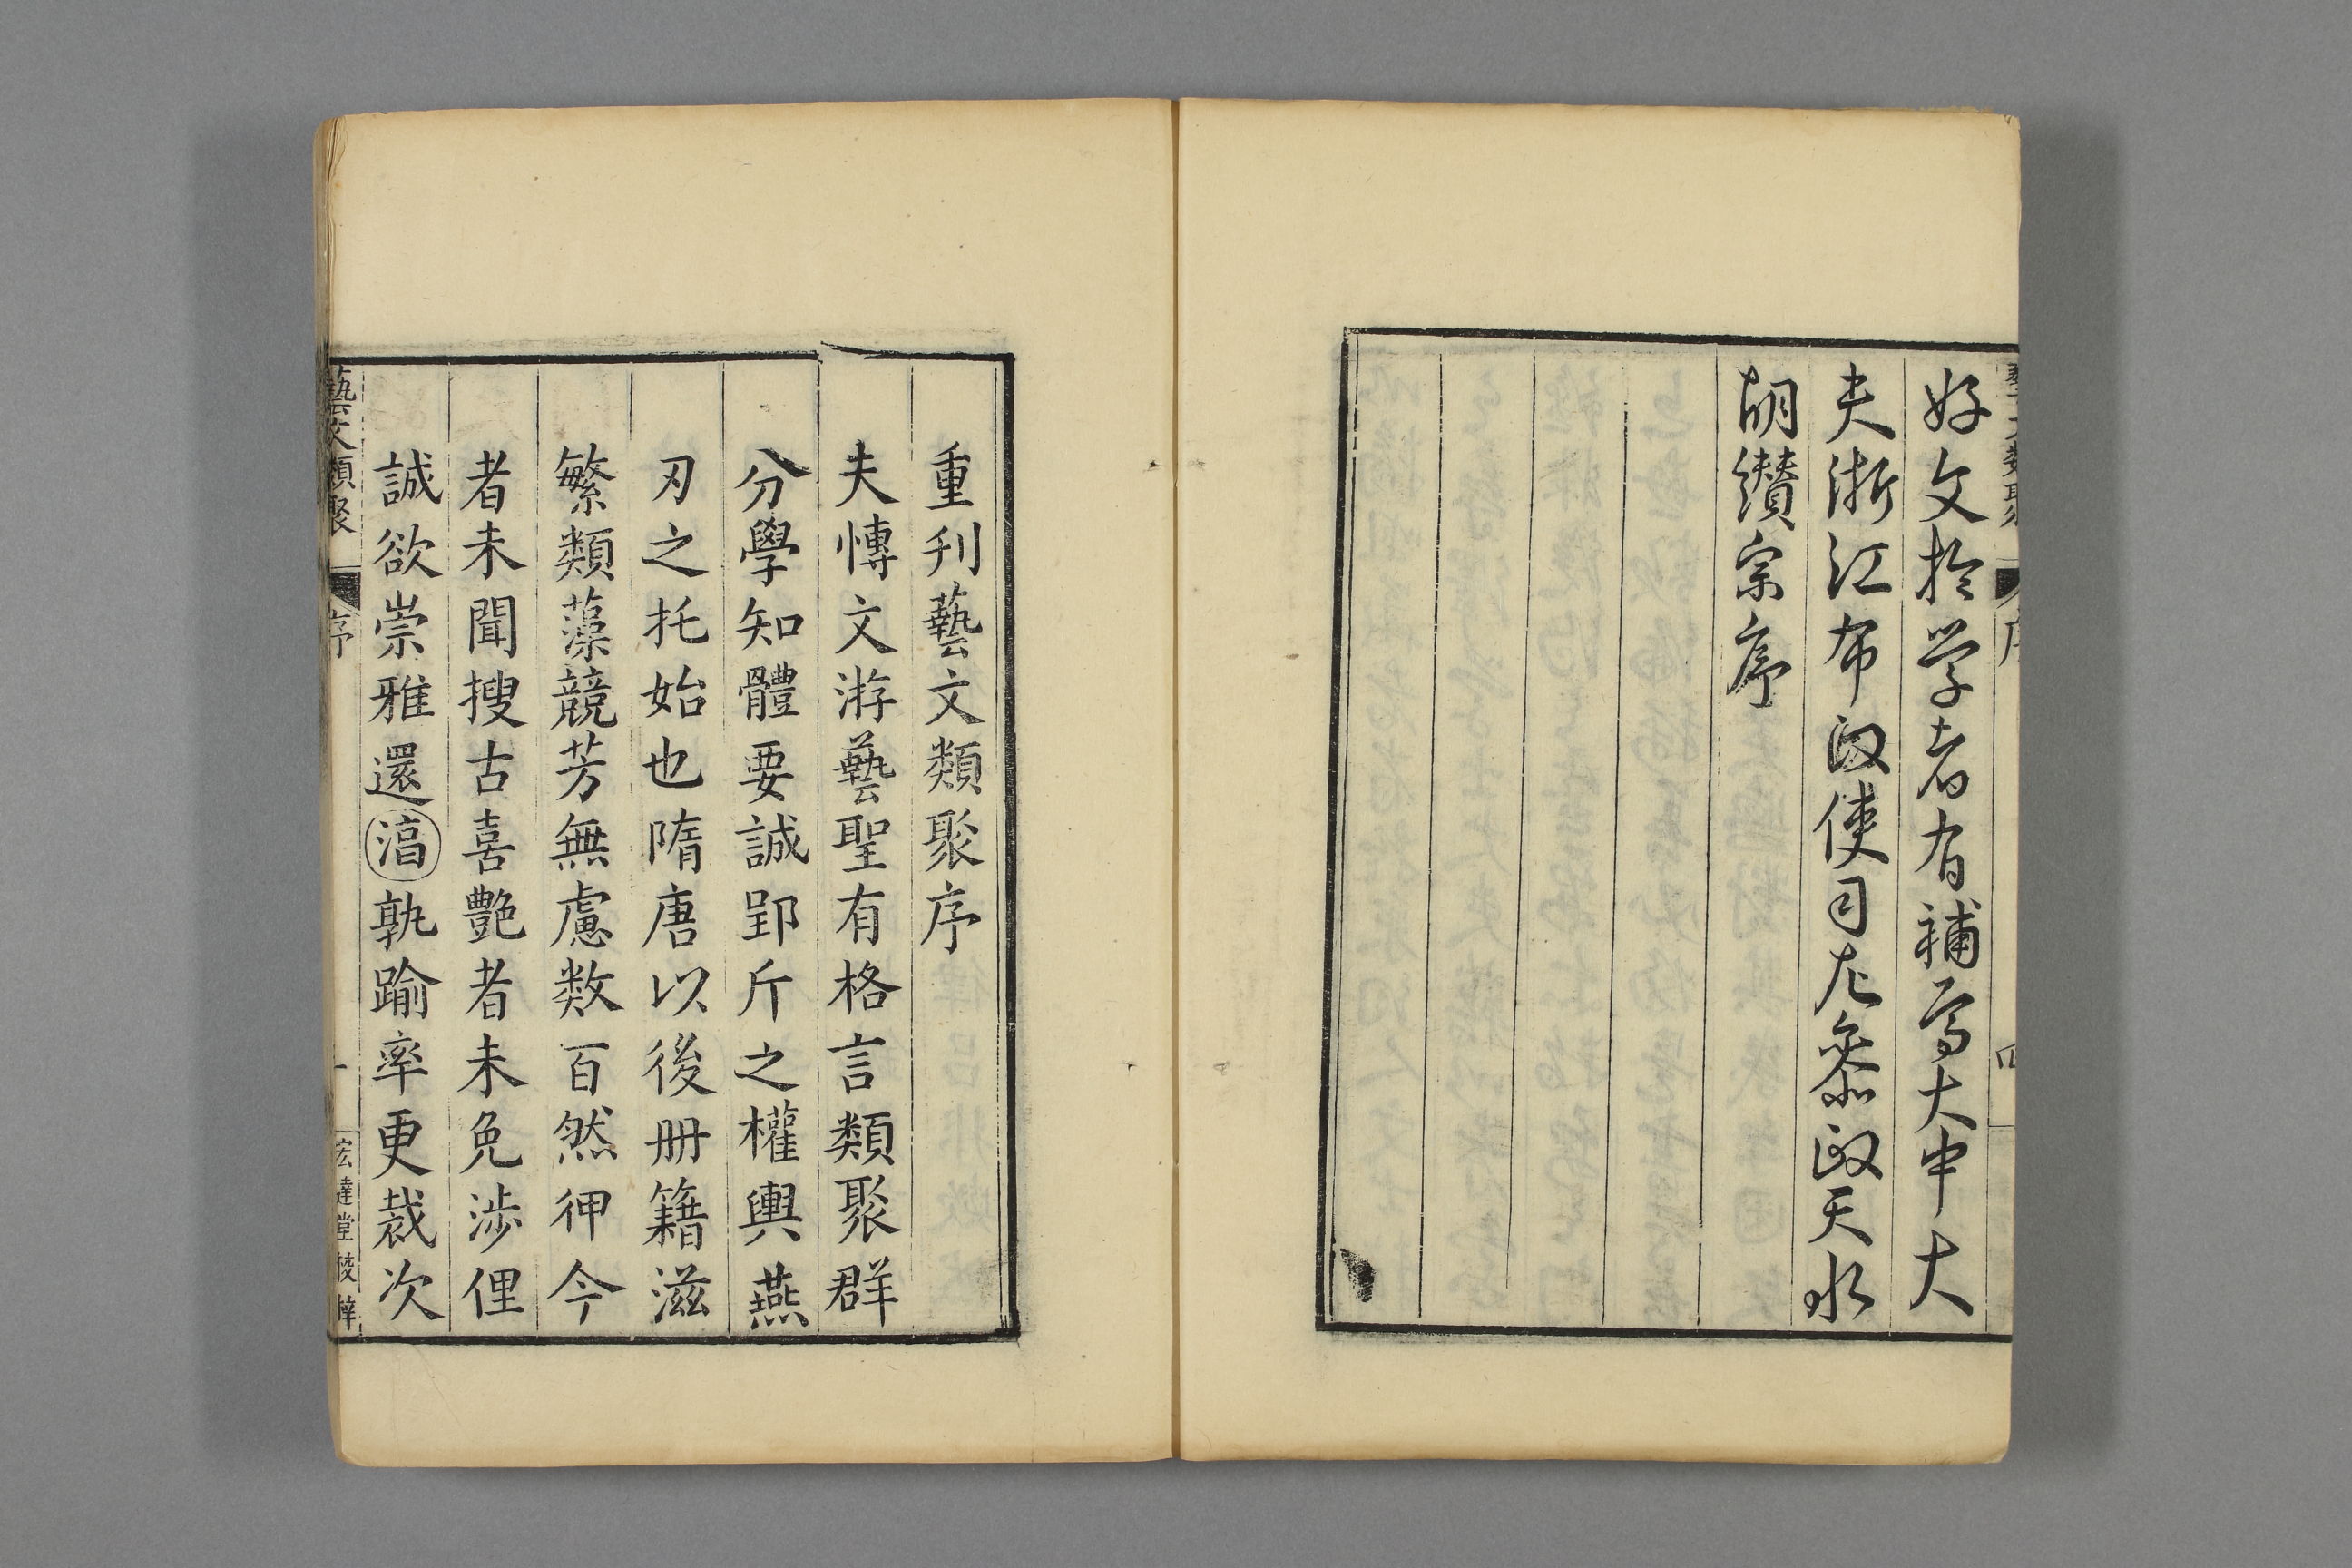 好文於学者有補焉大中大
夫浙江布政使司左叅政天水
胡纉宗序
重刊藝文類聚序
夫愽文游藝聖有格言類聚群
分學知體要誠郢斤之權輿燕
刃之托始也隋唐以後册籍滋
繁類藻競芳無慮数百然狎今
者未聞搜古喜艷者未免涉俚
誠欲崇雅還淳孰踰率更裁次
藝文類聚
序